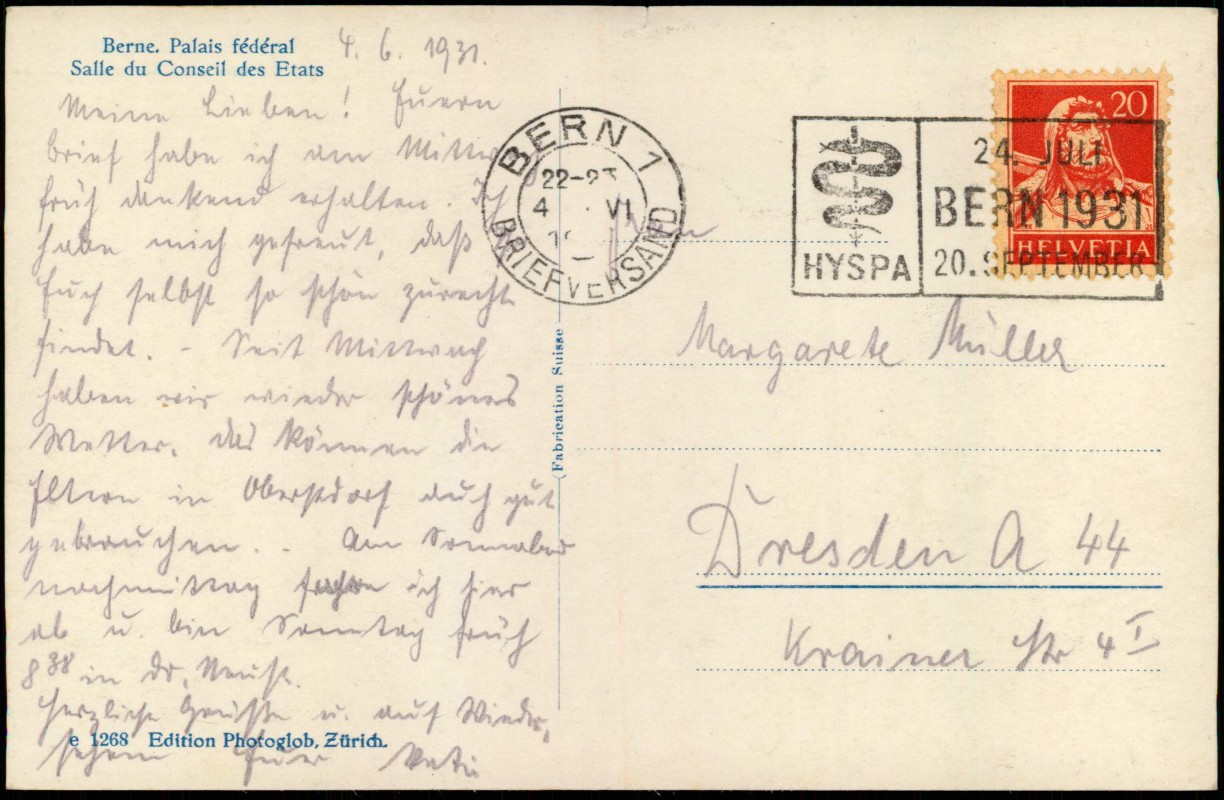 Berne. Palais fédéral
Salle du Conseil des Etats
4. 6. 1931.
Meine Lieben! Euern
Brief habe ich am Mittwoch
früh dankend erhalten. Ich
habe mich gefreut, daß
Euch selbst so schön zurecht
findet. – Seit Mittwoch
haben wir wieder schönes
Wetter. Das können die
Eltern in Oberstdorf auch gut
gebrauchen. – Am Sonnabend
nachmittag fahre ich hier
ab u. bin Sonntag früh
8³⁸ in Dr. Neust.
Herzliche Grüße u. auf Wieder-
sehen Euer Vati
e 1268 Edition Photoglob, Zürich.
(Fabrication Suisse
BERN 1
22-23
4 VI
BRIEFVERSAND
HYSPA
24. JULI
BERN 1931
20. SEPTEMBER
20
HELVETIA
Margarete Müller
Dresden A 44
Krainer Str 4 I